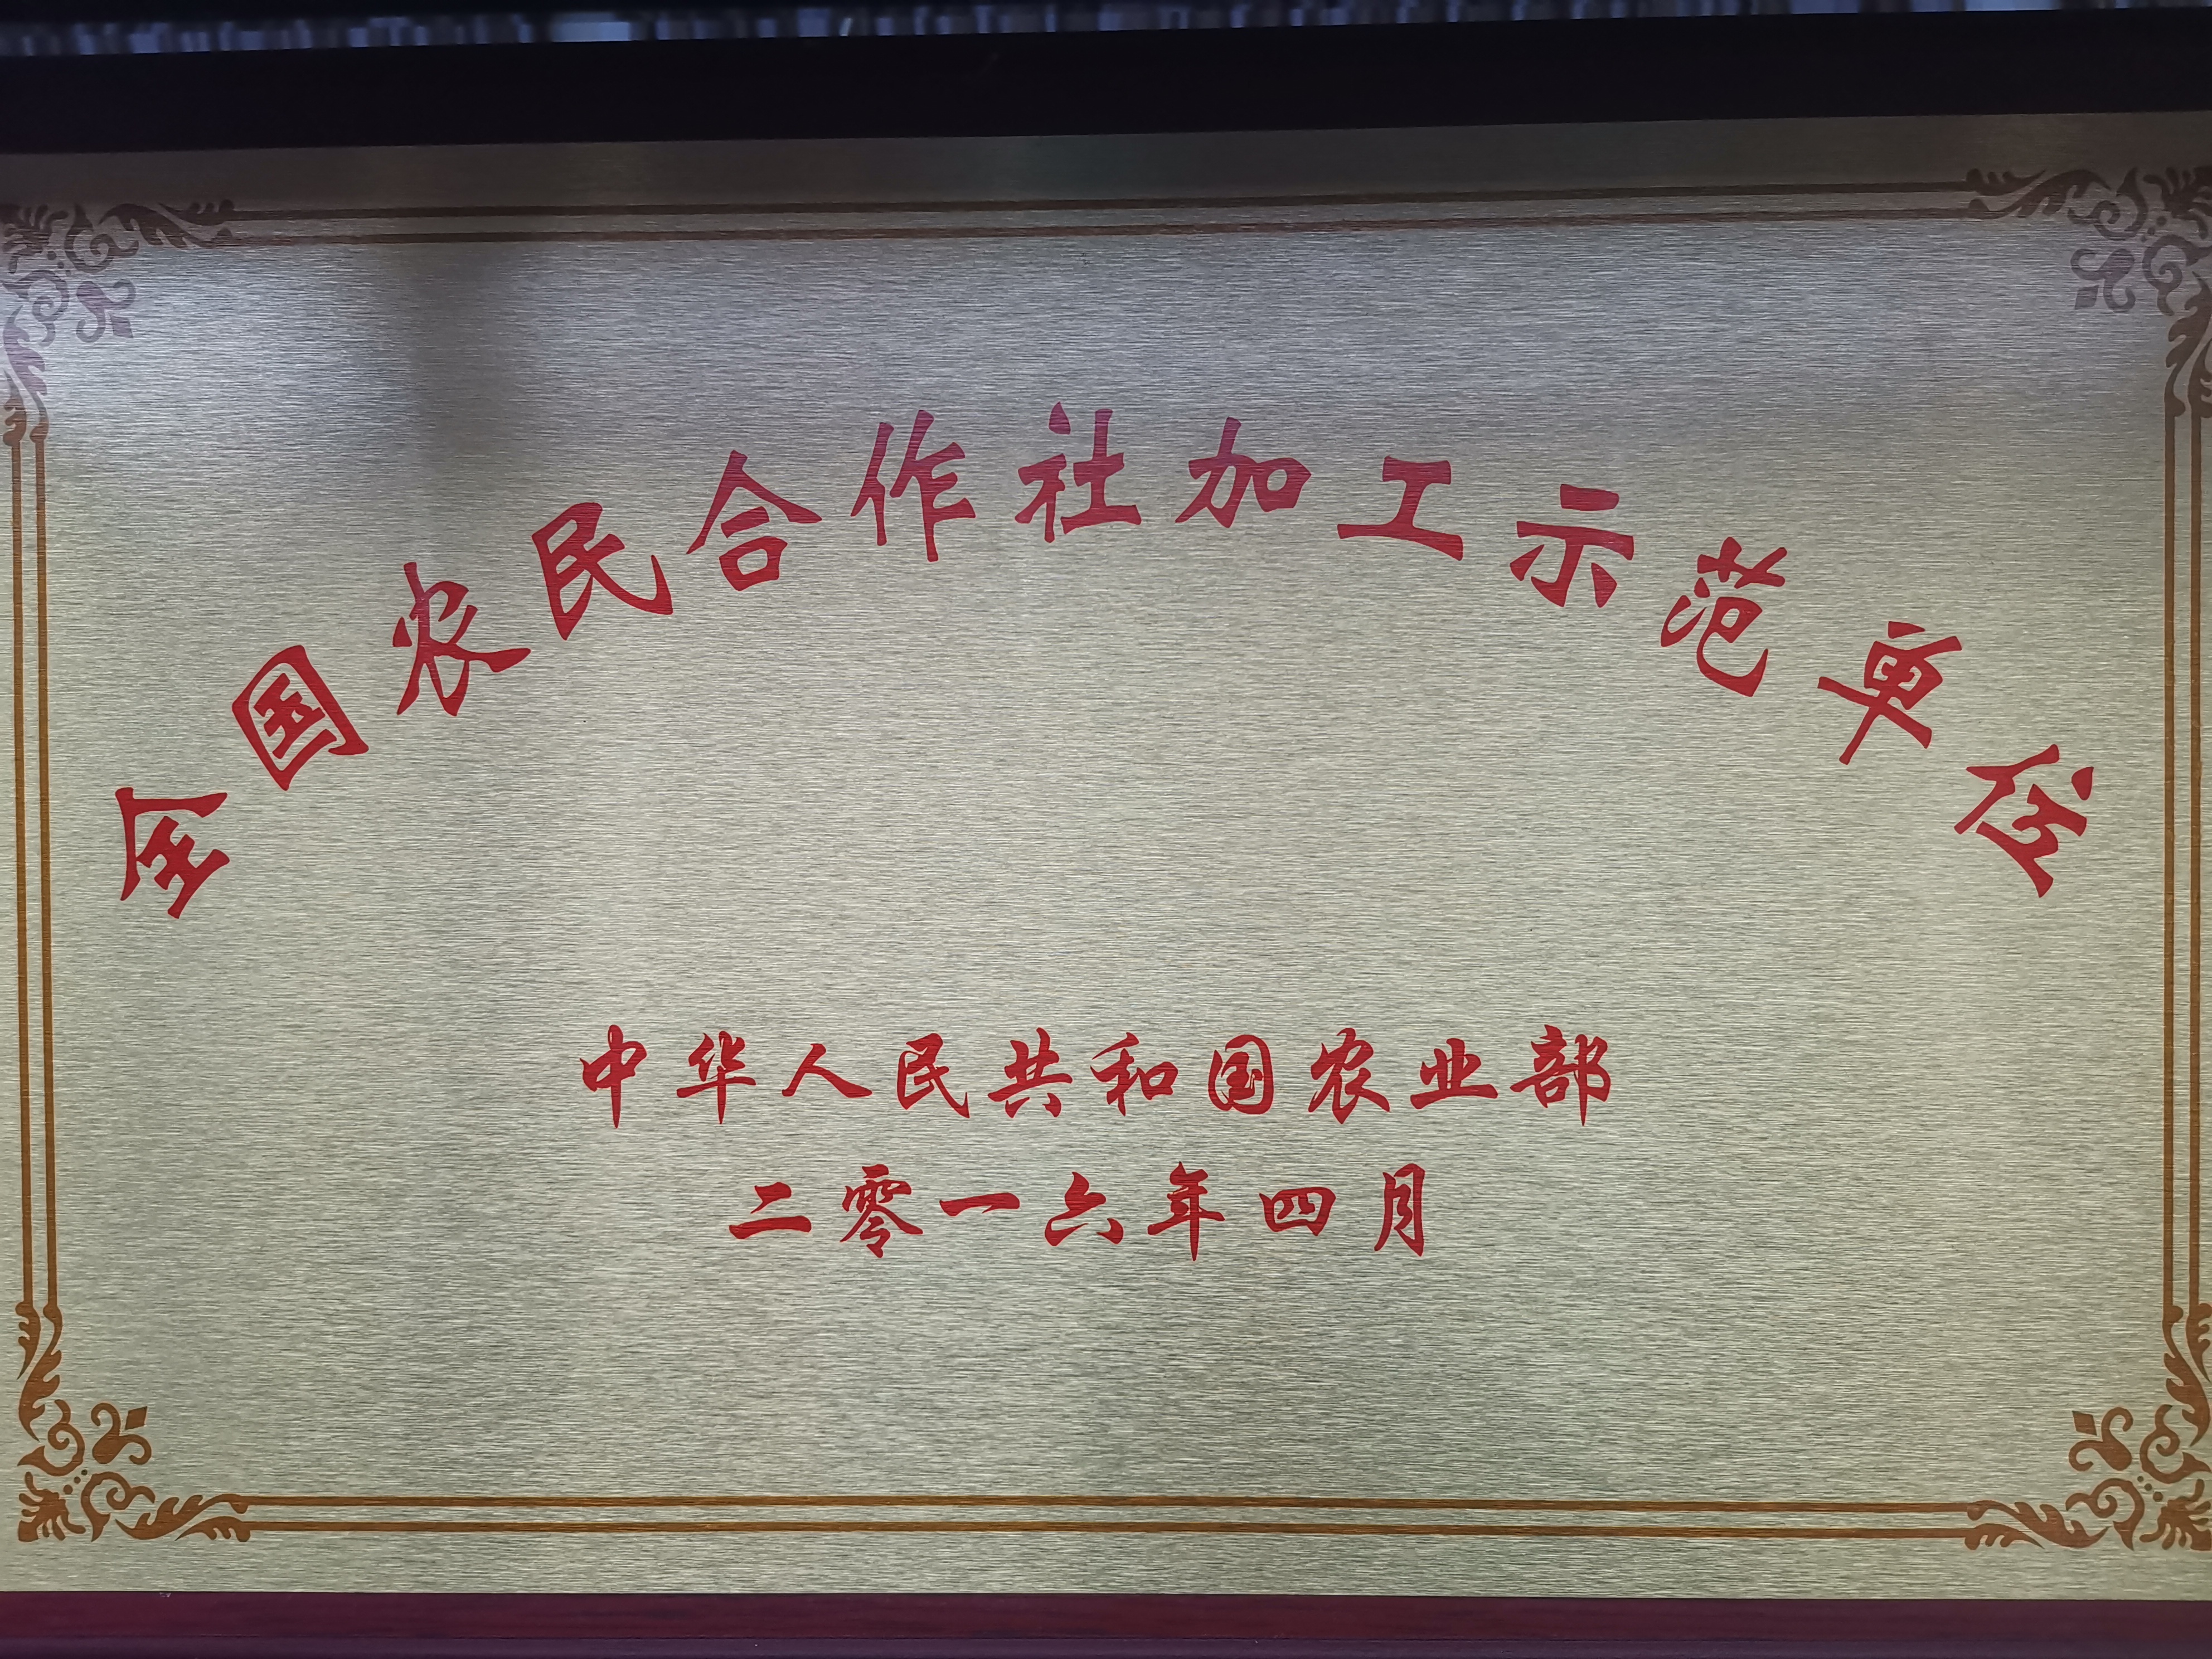 全国农民合作社加工示范单位
中华人民共和国农业部
二零一六年四月